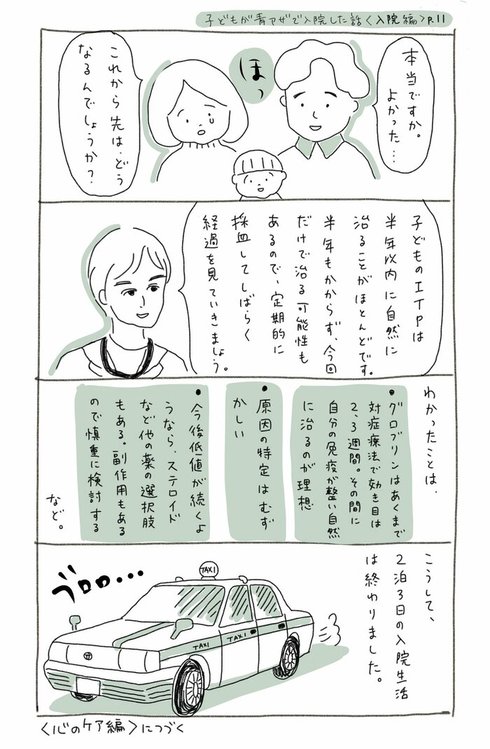 子どもが青アザで入院した話〈入院編〉P.11
本当ですか。
よかった…
ほっ
これから先は、どう
なるんでしょうか？
子どものITPは
半年以内に自然に
治ることがほとんどです。
半年もかからず、今回
だけで治る可能性も
あるので、定期的に
採血してしばらく
経過を見ていきましょう。
わかったことは、
•グロブリンはあくまで
対症療法で効き目は
2、3週間。その間に
自分の免疫が整い自然
に治るのが理想
•原因の特定はむず
かしい
•今後低値が続くよ
うなら、ステロイド
など他の薬の選択肢
もある。副作用もある
ので慎重に検討する
など。
こうして、
2泊3日の入院生活
は終わりました。
ブロロ...
TAXI
TAXI
TAXI
〈心のケア編〉につづく